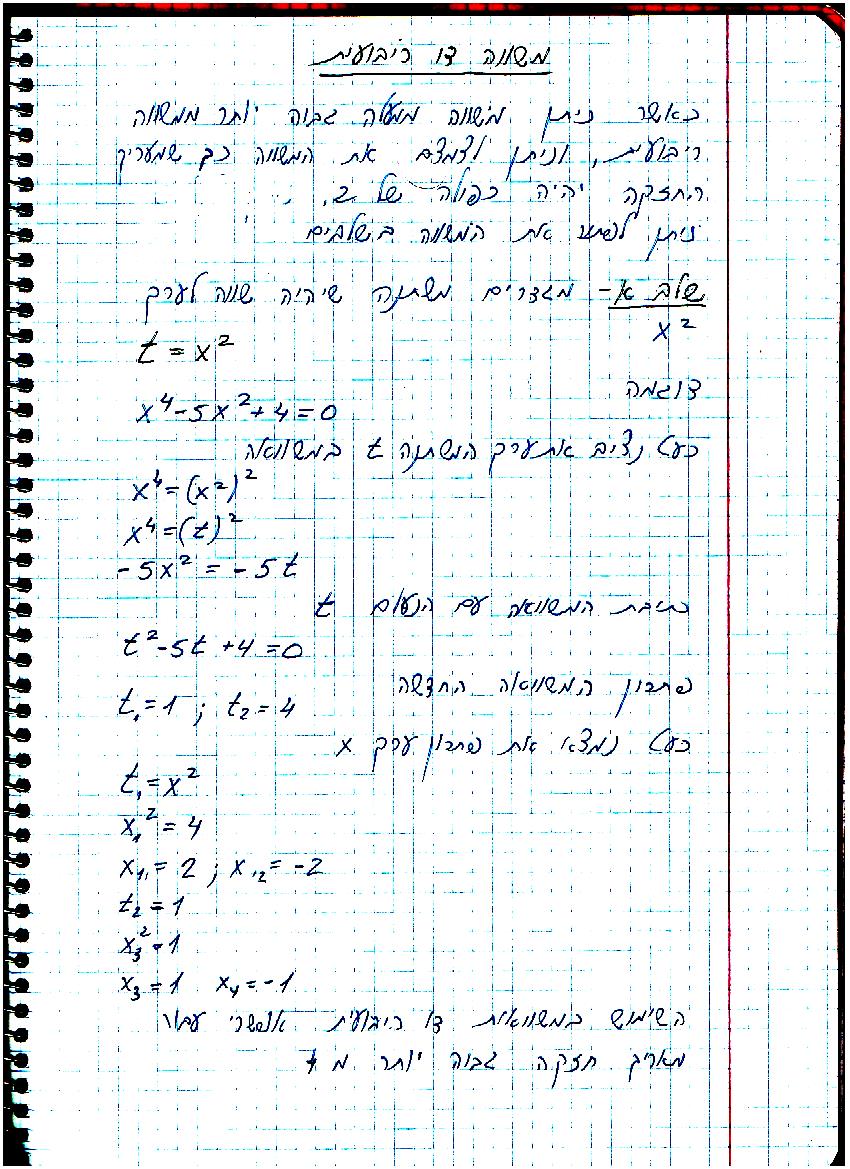 משווה דו ריבועית
כאשר ניתן משווה ממעלה גבוה יותר ממשווה
ריבועית, וניתן לצמצם את המשווה כך שמעריך
החזקה יהיה כפולה של 2.
ניתן לפתור את המשווה בשלבים
שלב א- מגדרים משתנה שיהיה שווה לערך
x²
t = x²
דוגמה
x⁴-5x²+4=0
כעת נציב את ערך המשתנה t במשוואה
x⁴=(x²)²
x⁴=(t)²
-5x² = -5t
כתיבת המשוואה עם הנעלם t
t²-5t+4=0
פתרון המשוואה החדשה
t₁=1 ; t₂=4
כעת נמצא את פתרון ערך x
t₁=x²
x₁²=4
x₁,=2 ; x,₂=-2
t₂=1
x₃²=1
x₃=1 x₄=-1
השימוש במשוואות דו ריבועית אפשרי עבור
מאריך חזקה גבוה יותר מ 4